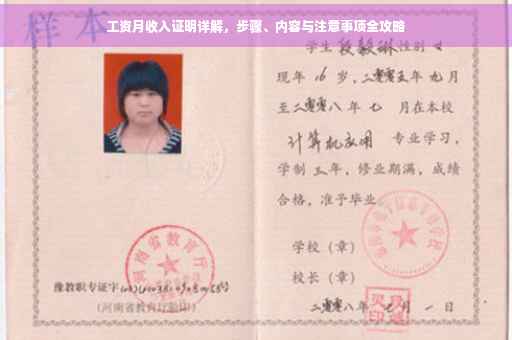 工资月收入证明详解，步骤、内容与注意事项全攻略
样本
学生段毅琳性别女
现年16岁，二零零五年九月
至二零零八年七月在本校
计算机应用专业学习，
学制三年，修业期满，成绩
合格，准予毕业。
学校（章）
校长（章）
二零零八年七月一日
河南省教育厅
豫教职专证字
（河南省教育厅验印）